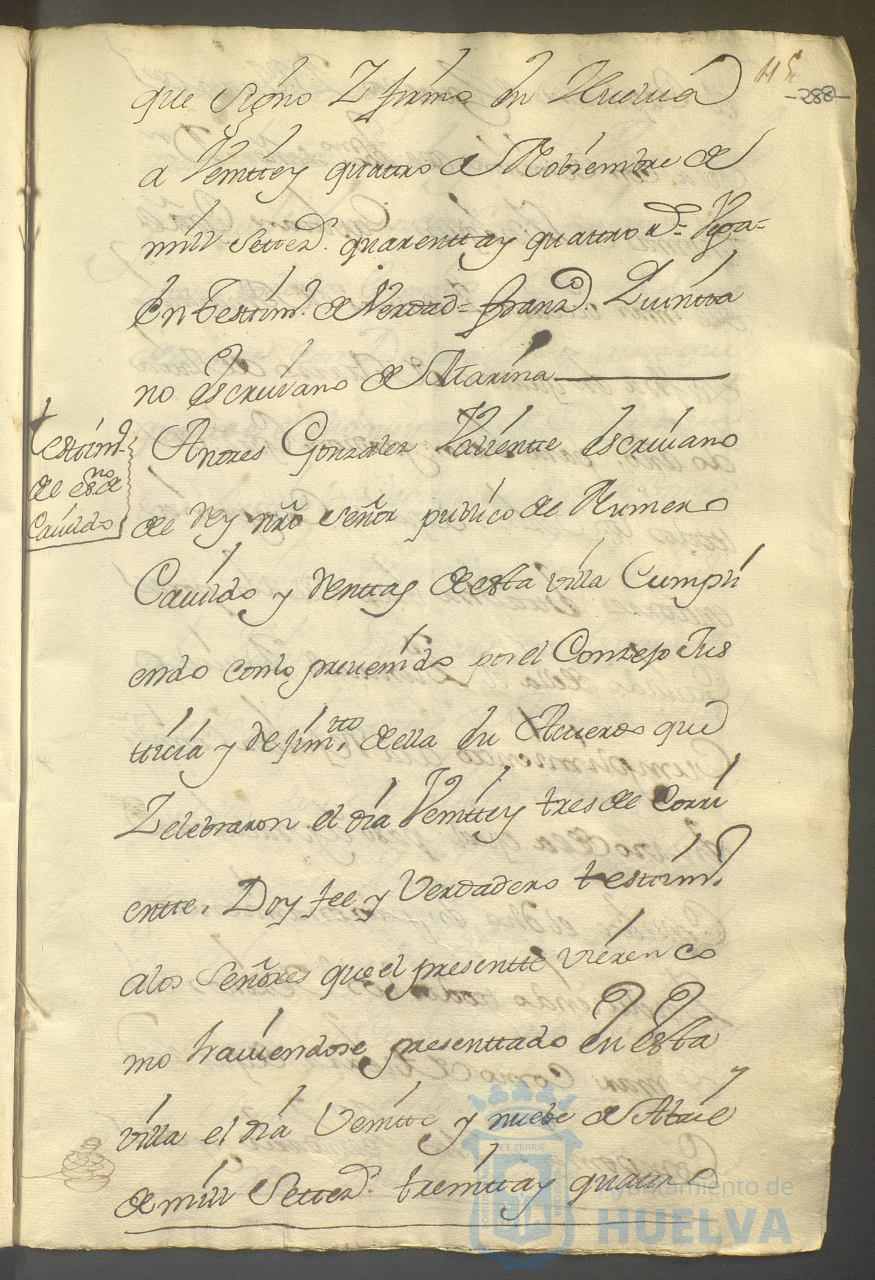 115
-288-
que signo y firmo en Huelva
a Veintte y quattro de Nobiembre de
mill settez.s quarentta y quattro
En testtim.o de Verdad = Franz.co Quintta
no escrivano de Marina
Testtim.o
de es.no de
Cavildo
Andres Gonzalez Valientte escrivano
de Rey nro señor publico de Numero
Cavildo y Renttas de esta villa Cumpli
endo con lo prevenido por el Conzejo Jus
tticia y Rejim.tto de ella en Acuerdo que
Zelebraron el dia Veintte y tres de Corri
entte, Doy fee y Verdadero testtim.o
a los señores que el presentte vieren co
mo haviendose presenttado en esta
villa el dia Veintte y nuebe de Abril
de mill settez.s treintta y quatro
Ayuntamiento de
HUELVA